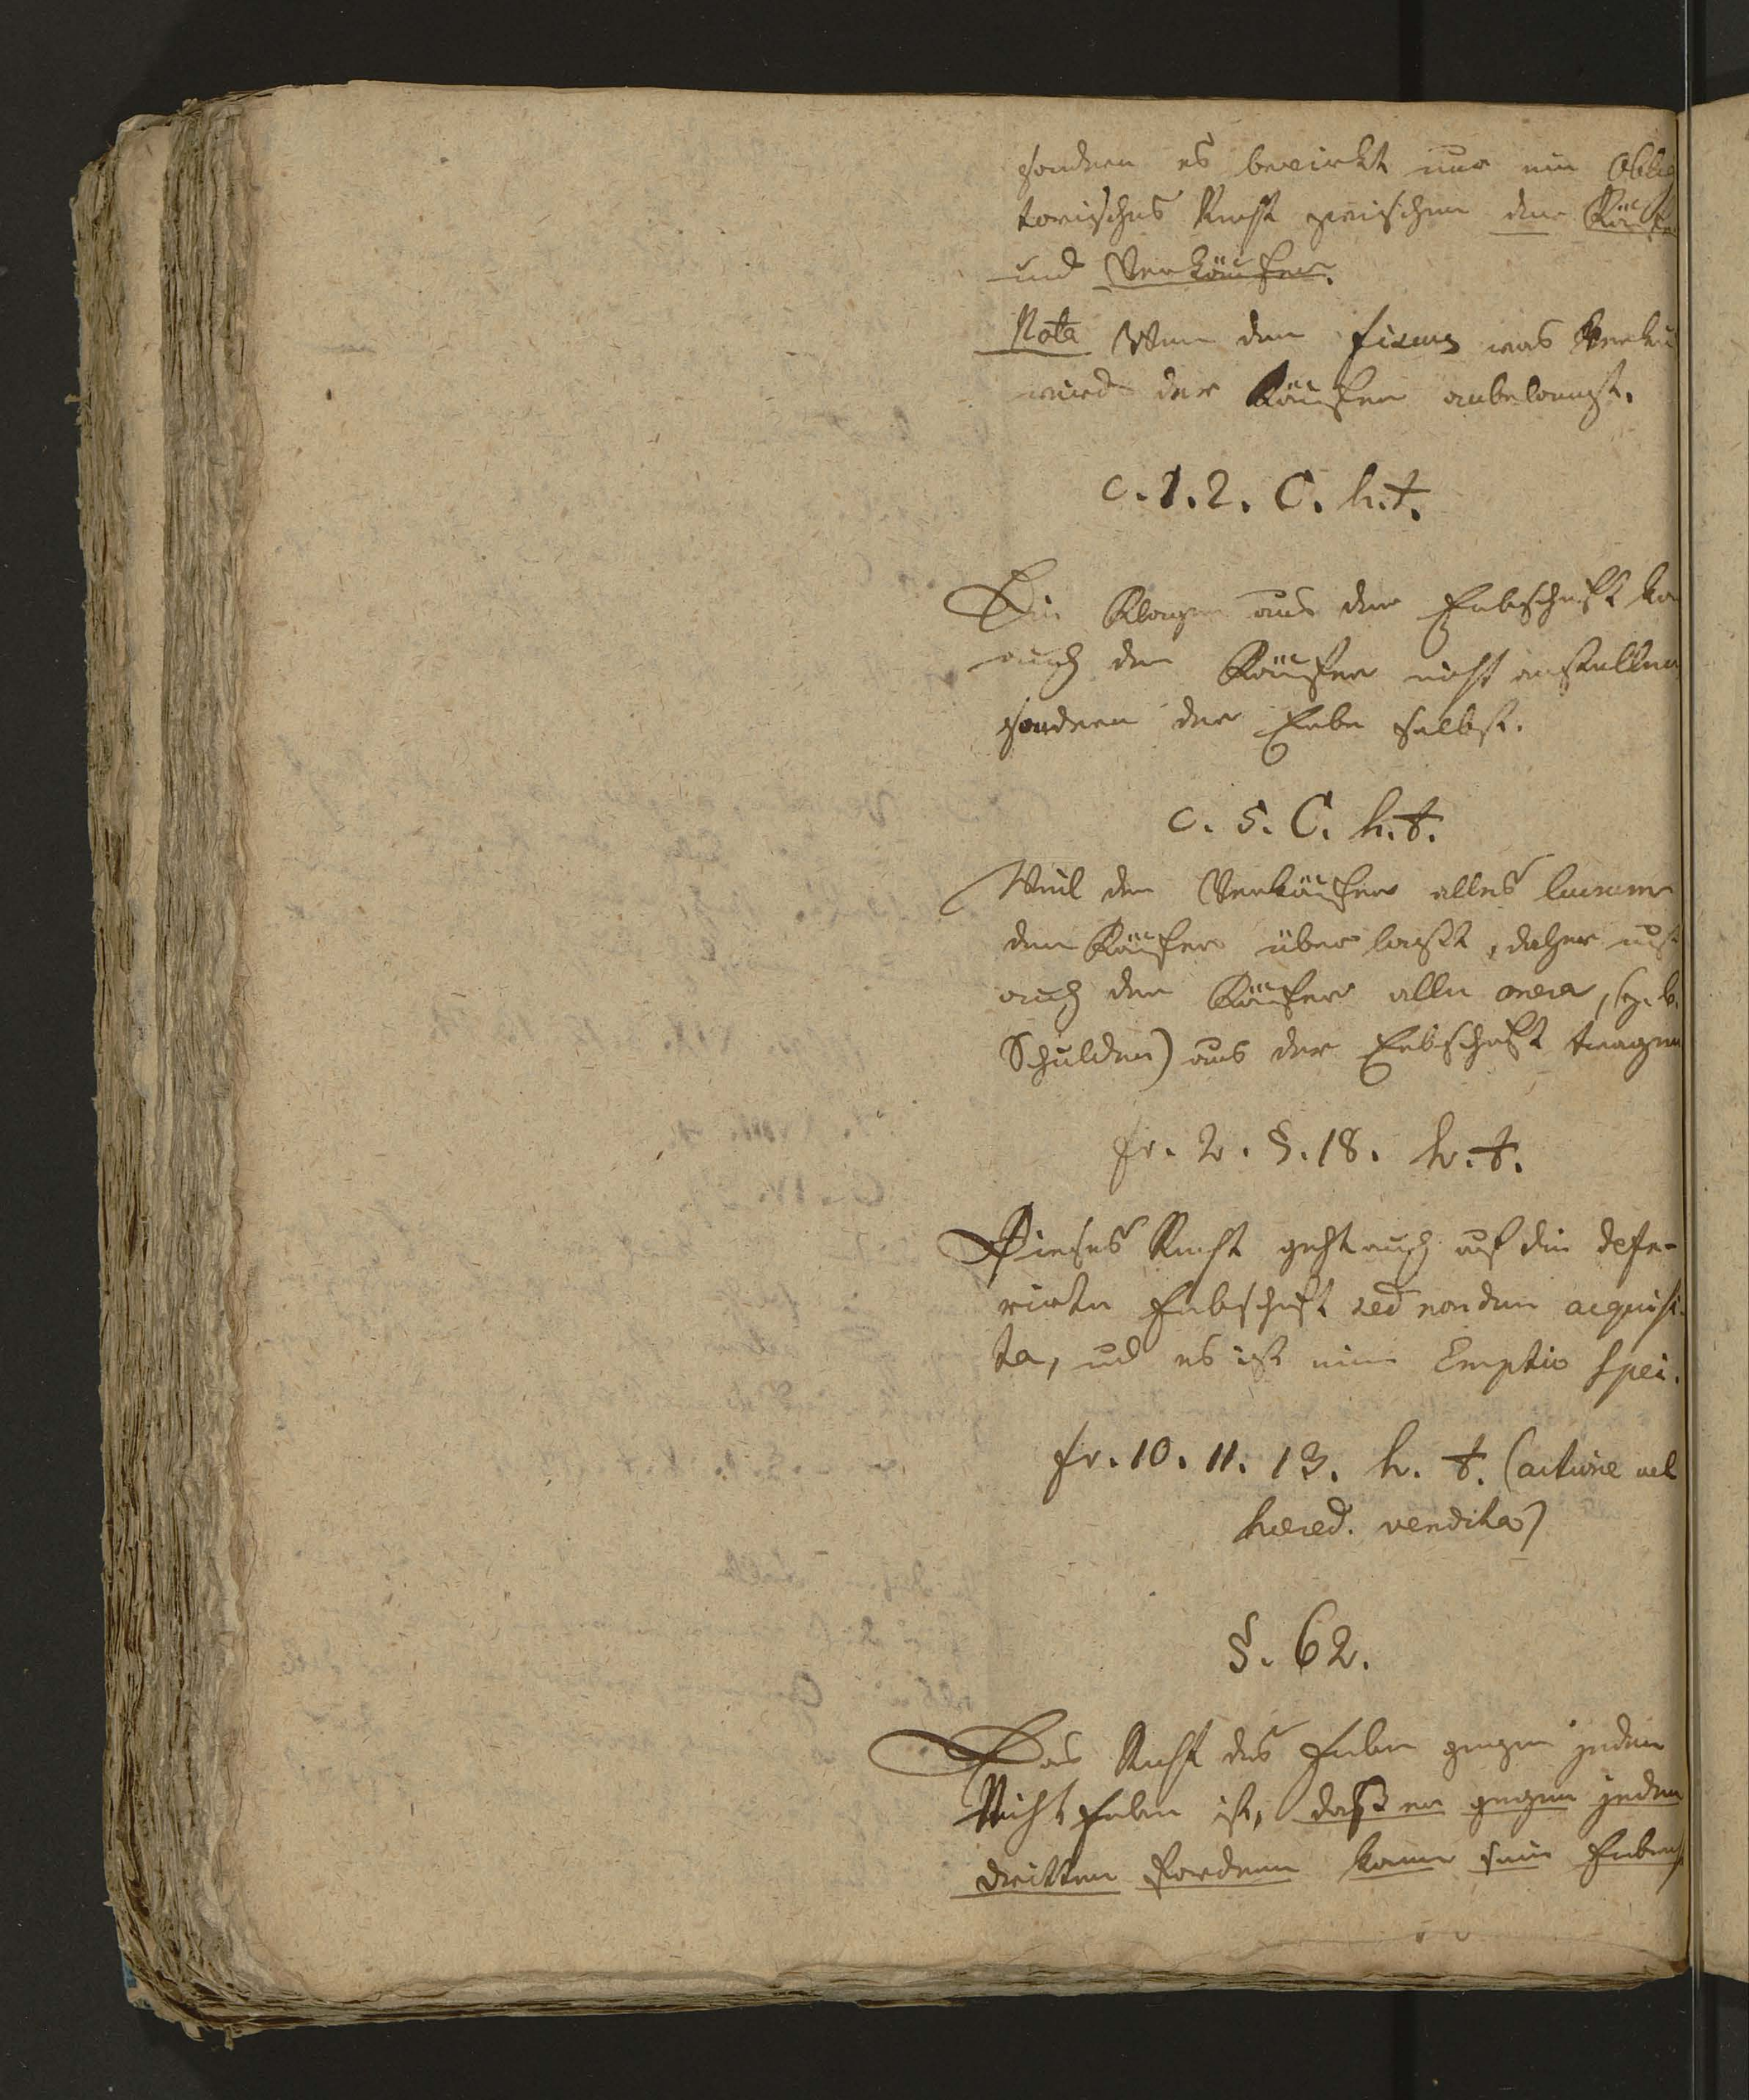 sondern es bewirkt nur ein Oblig
torisches Recht zwischen dem Käufer
und Verkäufer.
Nota Wenn der fiscus was Verkau
wird der Käufer anbelangt.
c. 1. 2. C. h. t.
Die Klagen aus der Erbschaft ka
auch der Käufer nicht anstellen
sondern der Erbe selbst.
c. 5. C. h. t.
Weil der Verkäufer alles lucrum
dem Käufer überlaßt, daher muß
auch der Käufer alle onera, (z. b.
Schulden) aus der Erbschaft tragen
fr. 2. §. 18. h. t.
Dieses Recht geht auch auf die defe-
rirte Erbschaft sed nondum acquisi-
ta, und es ist eine Emptio spei.
fr. 10. 11. 13. h. t. (actione vel
hered. vendita)
§. 62.
Das Recht des Erben gegen jeden
Nicht Erben ist, daß er gegen jeden
dritten fordern kann sein Erbens